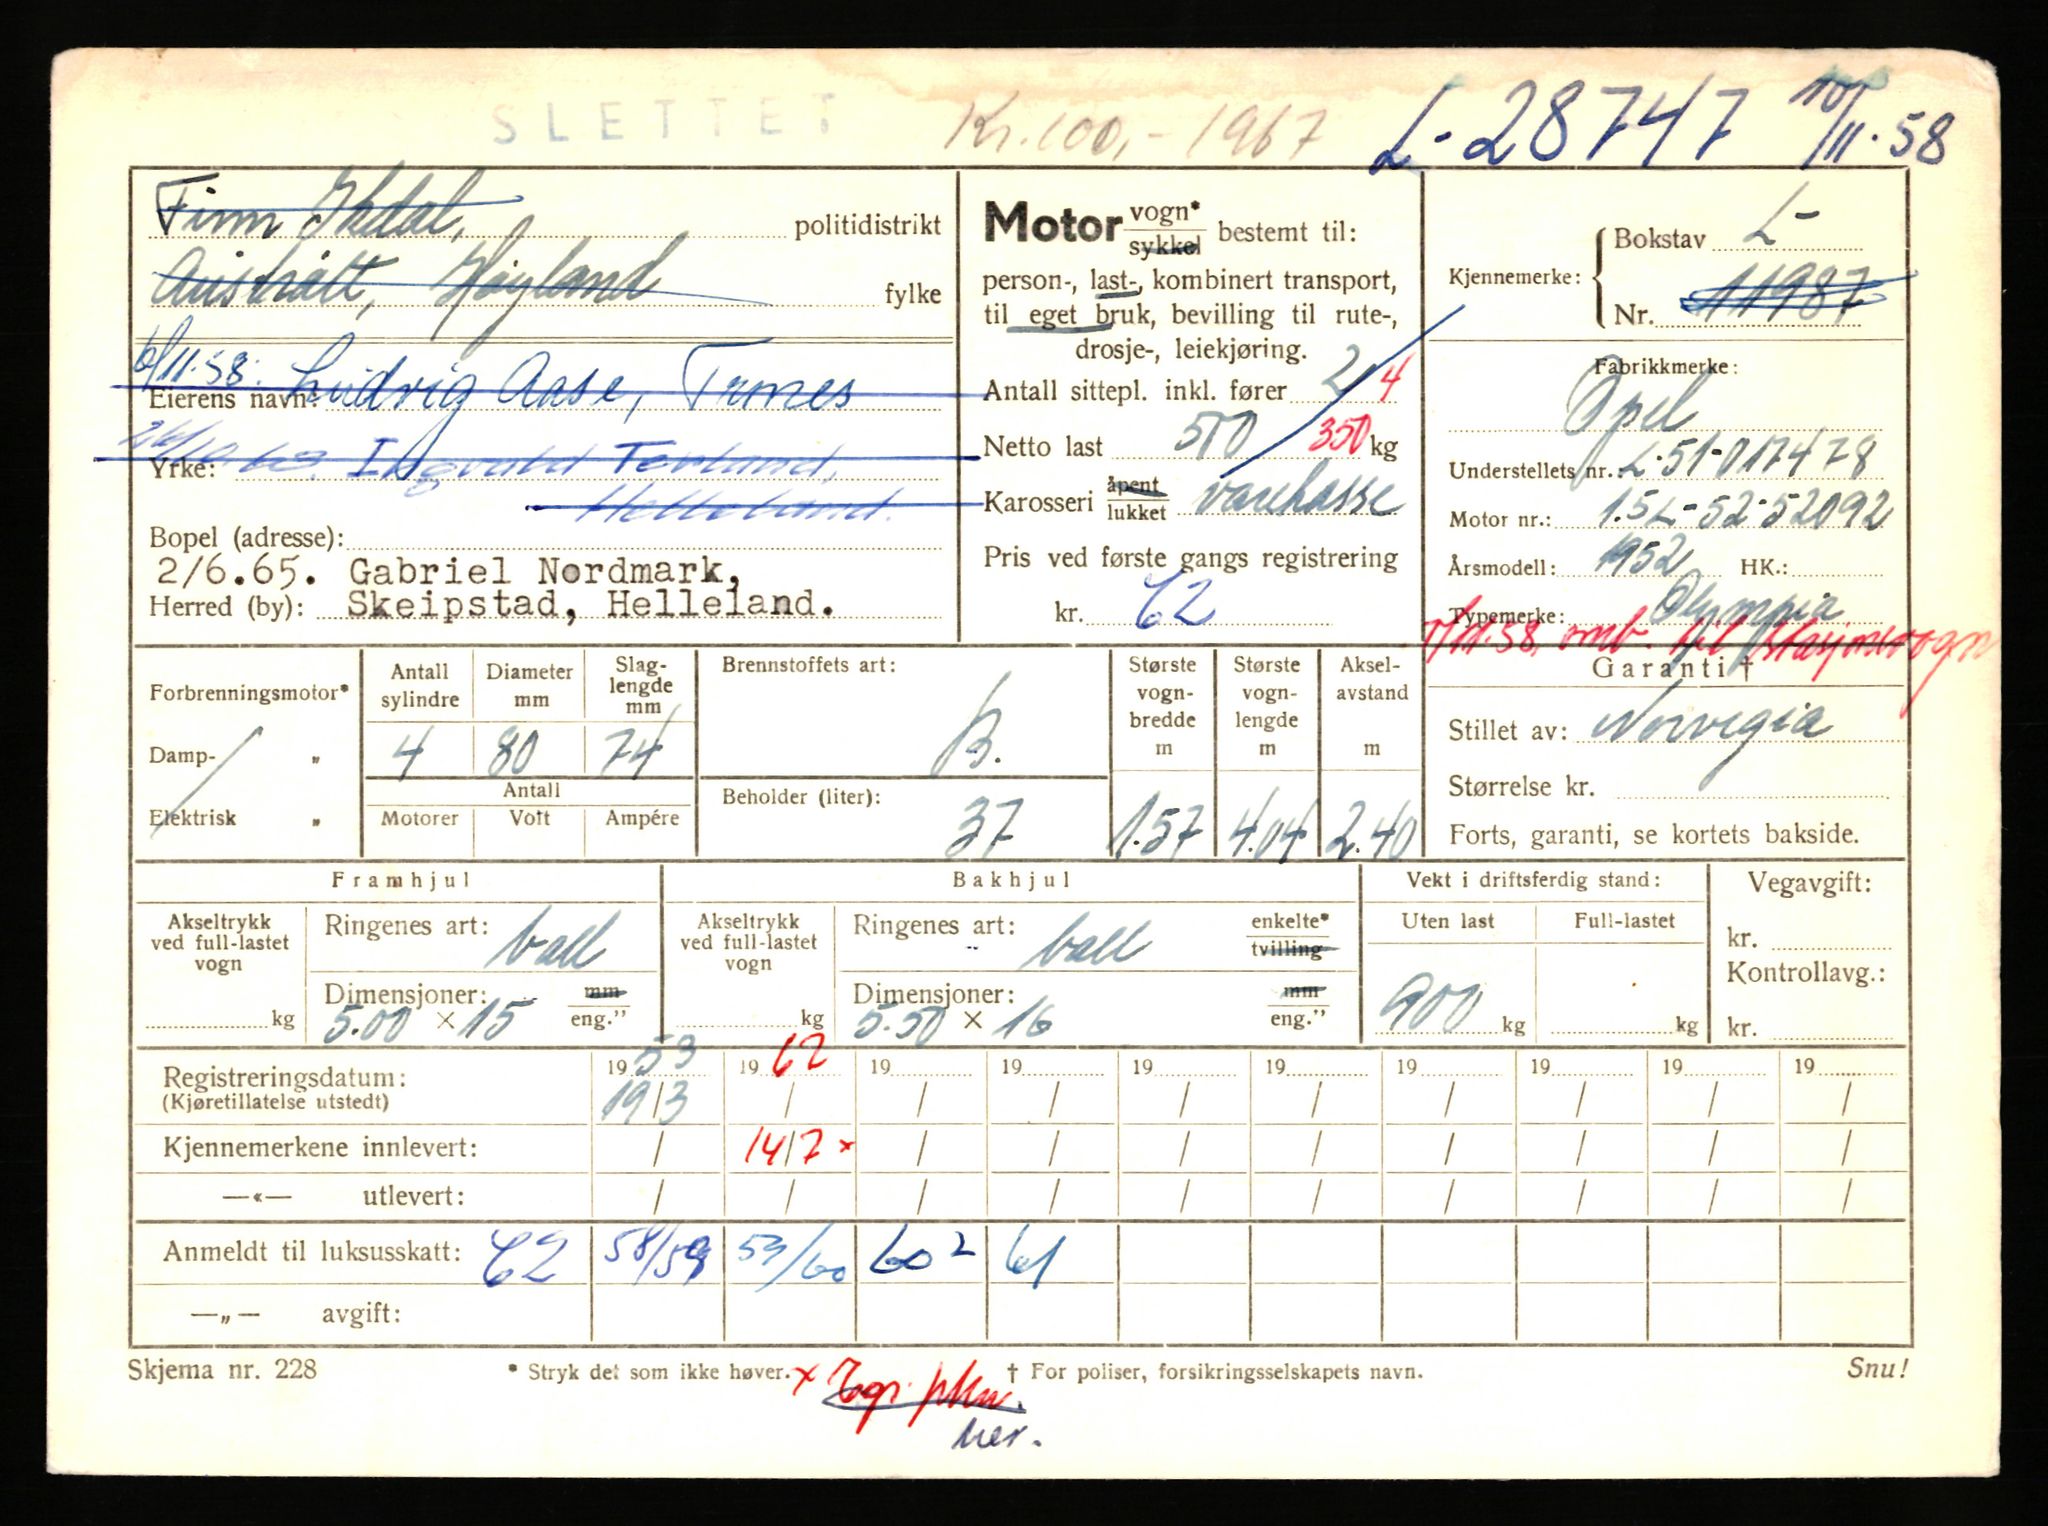 SLETTET Kr. 100,- 1967 L-28747 10/11.58
Finn politidistrikt
Austrått, Høyland fylke
6/11.58. Ludvig Aase, Trones
Eierens navn:
Yrke: Ingvald Terland,
Helleland.
Bopel (adresse):
2/6.65. Gabriel Nordmark,
Herred (by): Skeipstad, Helleland.
Motor vogn* sykkel bestemt til:
person-, last-, kombinert transport,
til eget bruk, bevilling til rute-,
drosje-, leiekjøring.
Antall sittepl. inkl. fører 2 4
Netto last 500 350 kg
Karosseri åpent lukket varekasse
Pris ved første gangs registrering
kr. 62
Kjennemerke: Bokstav L-
Nr. 11987
Fabrikkmerke:
Opel
Understellets nr.: L-51-017478
Motor nr.: 1.5L-52-52092
Årsmodell: 1952 HK.:
Typemerke: Olympia
omb. til stasjonsvogn
Forbrenningsmotor*
Damp- „
Elektrisk „
Antall sylindre Diameter mm Slag-lengde mm
4 80 74
Antall
Motorer Volt Ampére
Brennstoffets art:
B.
Beholder (liter):
37
Største vogn-bredde m Største vogn-lengde m Aksel-avstand m
1.57 4.04 2.40
Garanti †
Stillet av: Norvegia
Størrelse kr.
Forts, garanti, se kortets bakside.
Framhjul Bakhjul Vekt i driftsferdig stand: Vegavgift:
Akseltrykk ved full-lastet vogn
kg
Ringenes art: ball
Dimensjoner: mm
5.00 × 15 eng.”
Akseltrykk ved full-lastet vogn
kg
Ringenes art: ball enkelte* tvilling
Dimensjoner: mm
5.50 × 16 eng.”
Uten last Full-lastet
900 kg kg
kr.
Kontrollavg.:
kr.
Registreringsdatum: 19 53 19 62 19 19 19 19 19 19 19 19
(Kjøretillatelse utstedt) 19/3 / / / / / / / / /
Kjennemerkene innlevert: / 14/7 × / / / / / / / /
—«— utlevert: / / / / / / / / / /
Anmeldt til luksusskatt: 62 58/59 59/60 60 2 61
—„— avgift:
Skjema nr. 228 * Stryk det som ikke høver. † For poliser, forsikringsselskapets navn. Snu!
×
her.